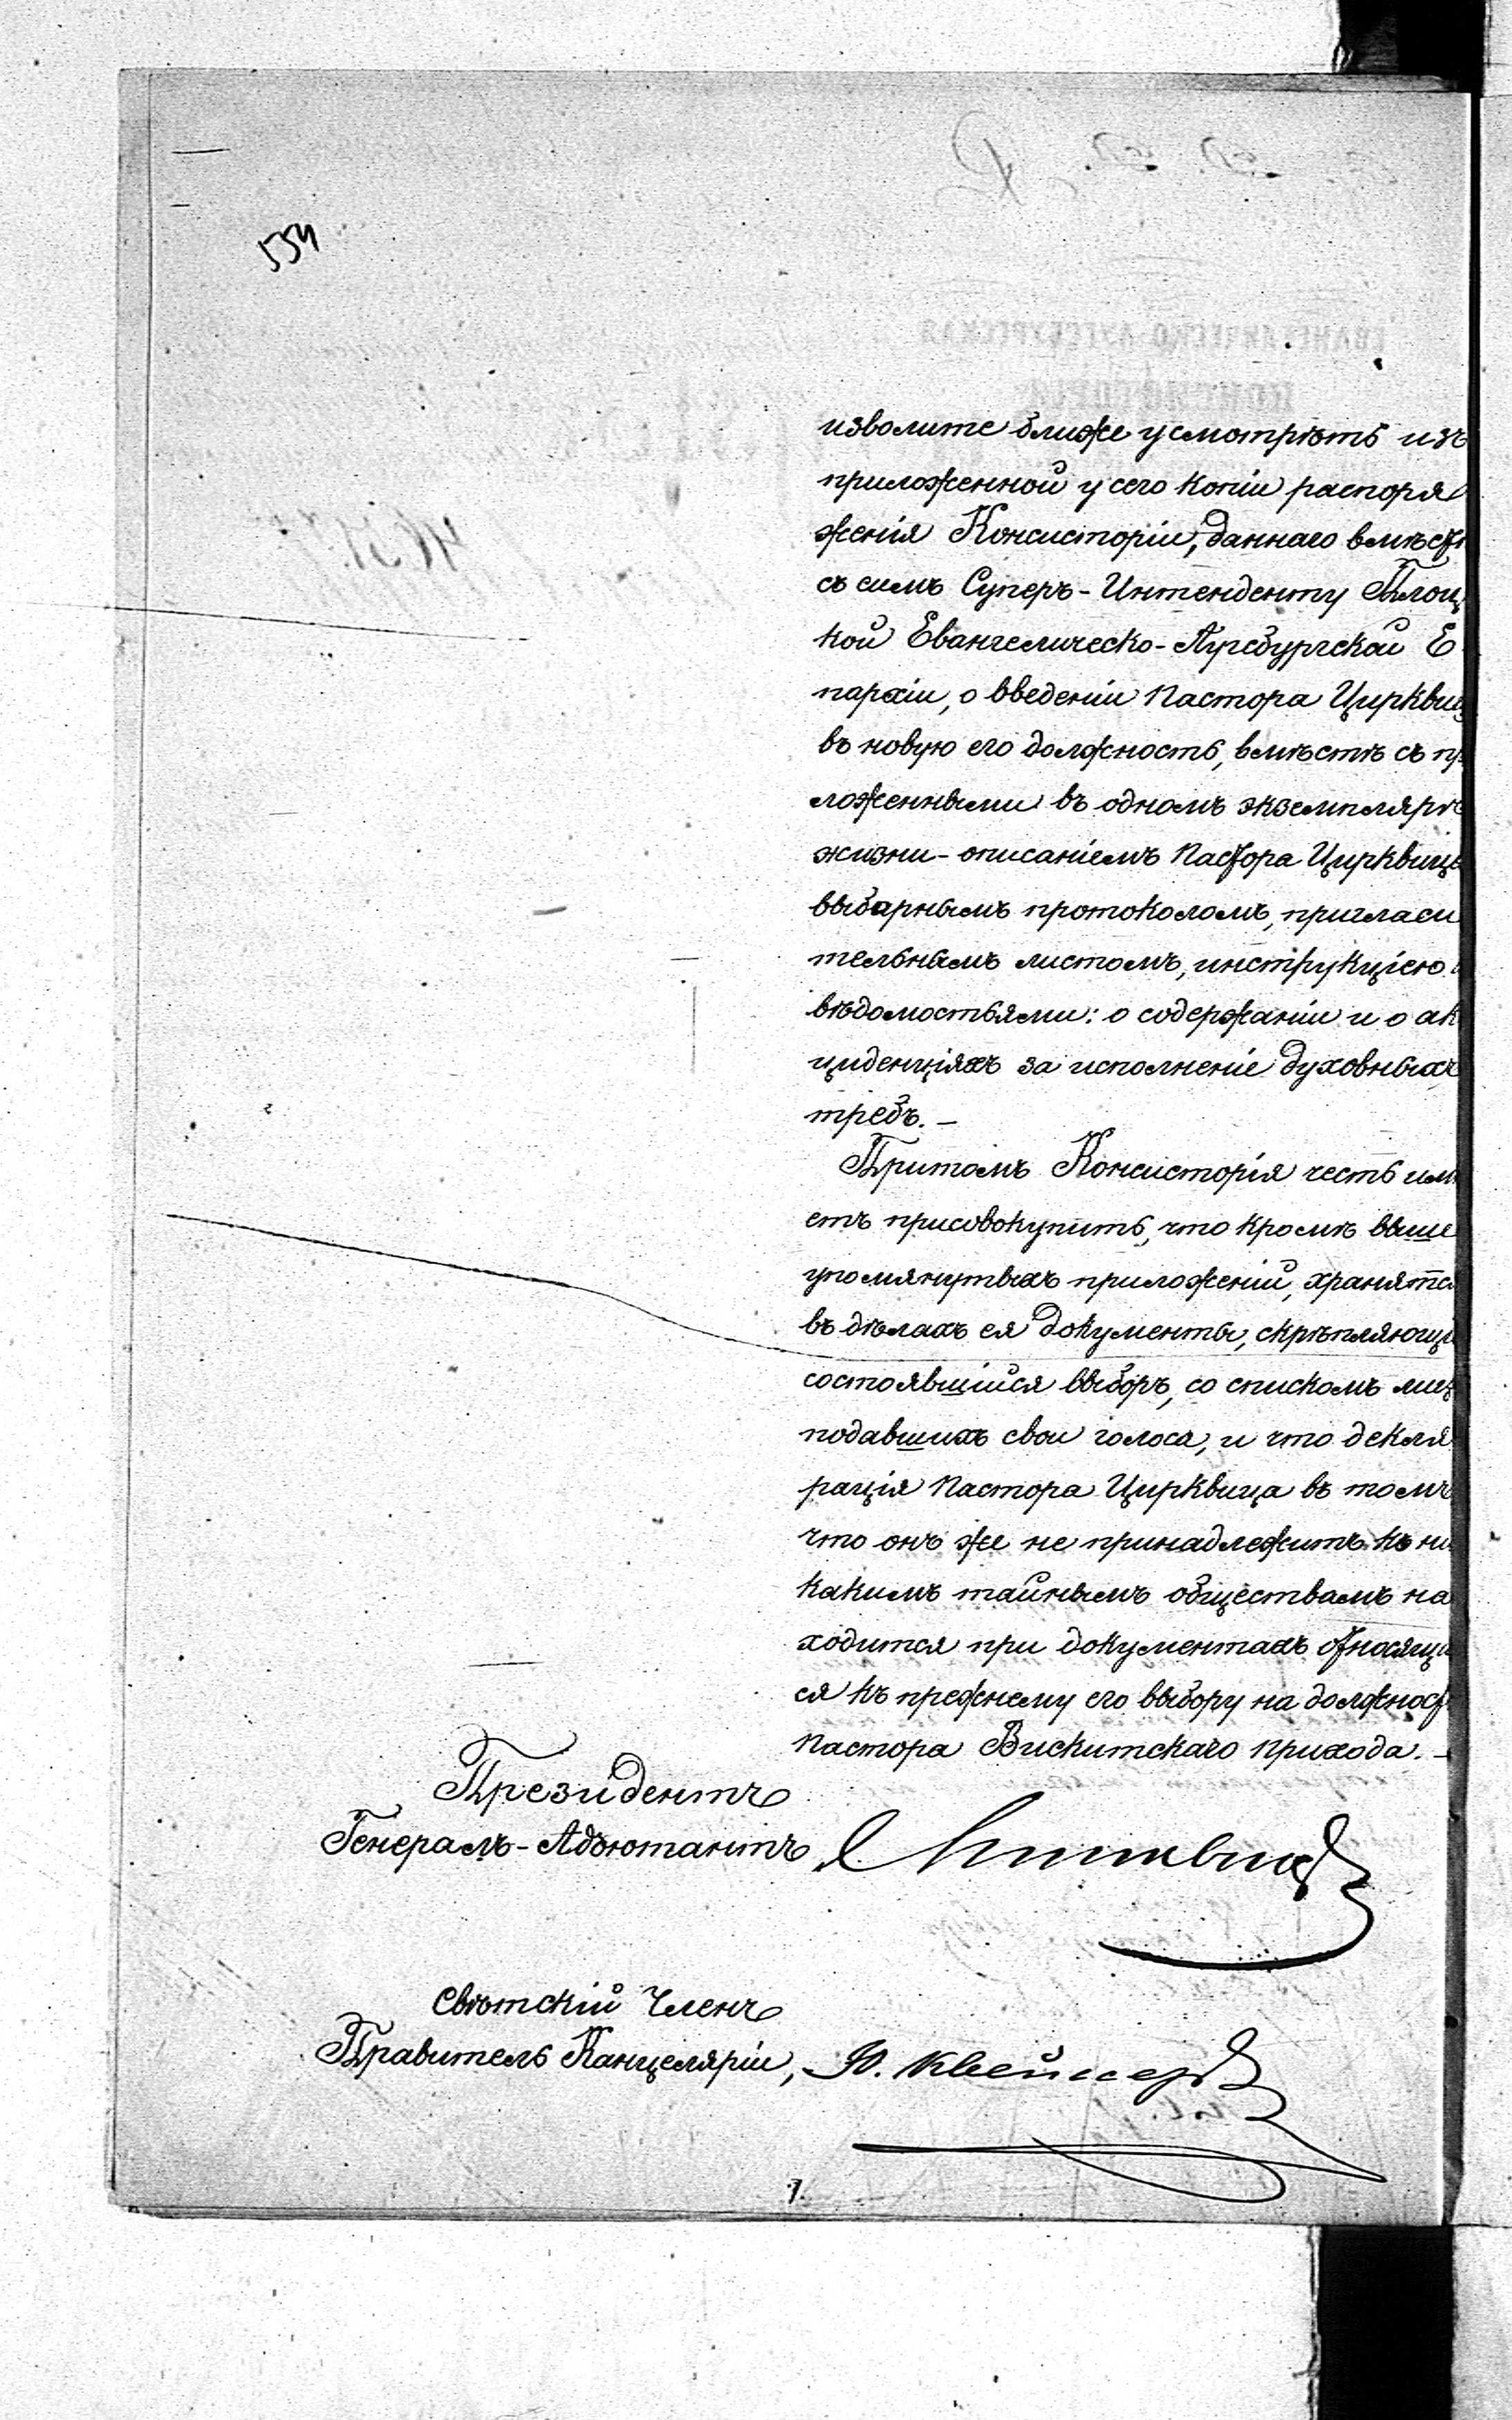 554
изволите ближе усмотрѣть изъ
приложенной у сего копіи распоря
женія Консисторіи, даннаго вмѣст
съ симъ Суперъ-Интенденту Плоц
кой Евангелическо-Аугсбургской Е
пархіи, о введеніи Пастора Цирквиц
въ новую его должность, вмѣстѣ съ пр
ложенными въ одномъ экземплярѣ
жизни-описаніемъ Пастора Цирквица
выборнымъ протоколомъ, пригласи
тельнымъ листомъ, инструкціею
вѣдомостьями: о содержаніи и о ак
циденціяхъ за исполненіе духовныхъ
требъ. —
Притомъ Консисторія честь имѣ
етъ присовокупить, что кромѣ выше
упомянутыхъ приложеній, хранятся
въ дѣлахъ ея документы, скрѣпляющі
состоявшійся выборъ, со спискомъ лиц
подавшихъ свои голоса, и что декля
рація Пастора Цирквица въ томъ
что онъ же не принадлежитъ къ ни
какимъ тайнымъ обществамъ на
ходится при документахъ относящи
ся къ прежнему его выбору на должност
Пастора Вискитскаго прихода. —
Президентъ
Генералъ-Адъютантъ
Свѣтскій Членъ
Правитель Канцеляріи,